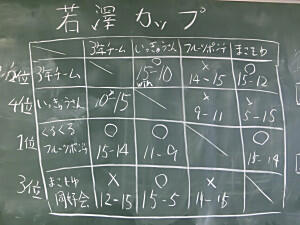 若澤カップ
3年チーム いっきゅうさん フルーツポンチ まこもゆ
2位 3年チーム ○ 15-10 win × 14-15 ○ 15-12
4位 いっきゅうさん 10-15 × 9-11 × 5-15
1位 くるくるフルーツポンチ ○ 15-14 ○ 11-9 ○ 15-14
3位 まこもゆ同好会 × 12-15 ○ 15-5 × 14-15